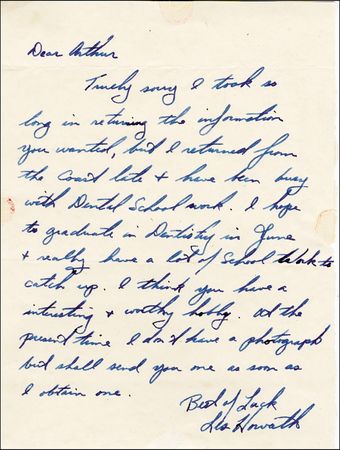 Dear Arthur
Truely sorry I took so
long in returning the information
you wanted, but I returned from
the Coast late + have been busy
with Dental School work. I hope
to graduate in Dentistry in June
+ really have a lot of School Work to
catch up. I think you have a
interesting + worthy hobby. At the
present time I don't have a photograph
but shall send you one as soon as
I obtain one.
Best of Luck
Les Horvath